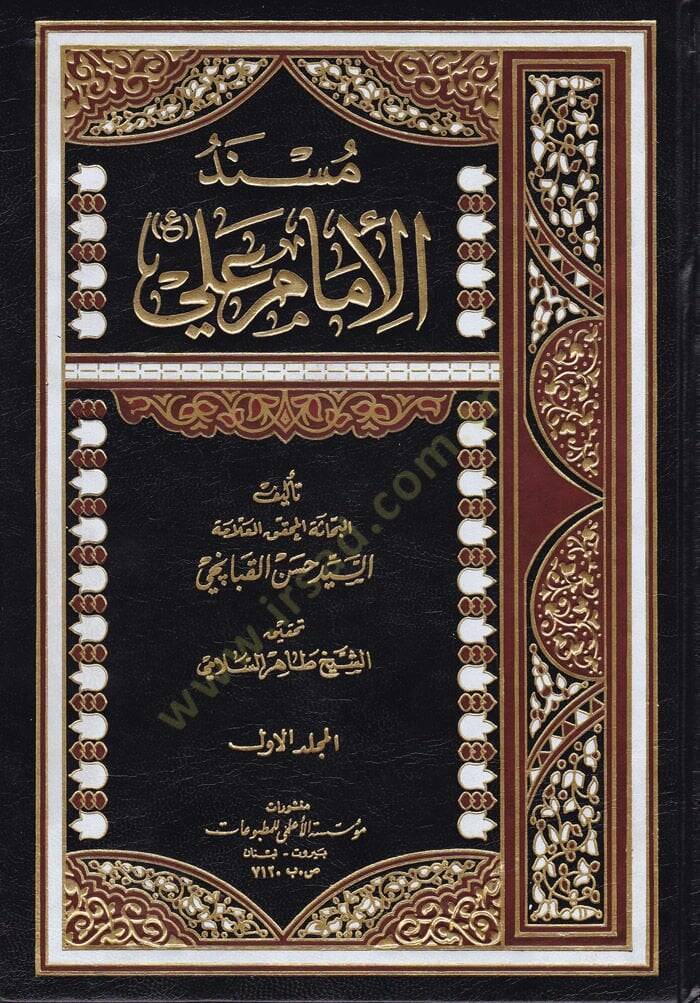 مُسْنَدُ
الإِمَامِ عَلِيّ (ع)
تأليف
البحاثة المحقق العلامة
السيّد حسن القبانجي
تحقيق
الشيخ طاهر السلامي
المجلد الاول
منشورات
مؤسسة الأعلمي للمطبوعات
بيروت - لبنان
ص.ب ٧١٢٠
www.irsad.com.tr